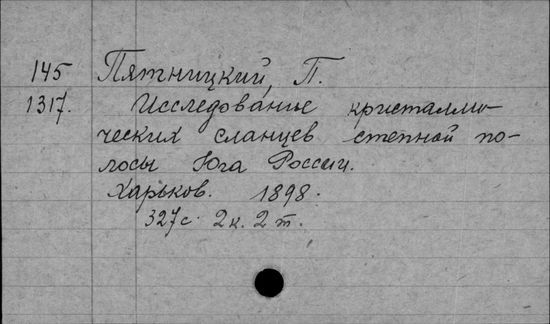 145 Пятницкий, П.
1317. Исследованье кристалли-
ческих сланцев степной по-
лосы Юга России.
Харьков. 1898.
327с. 2к. 2т.